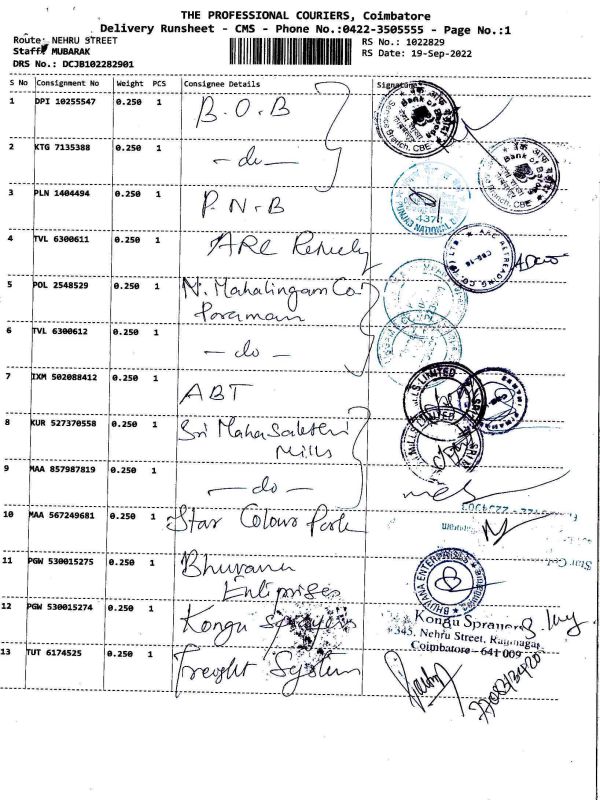 THE PROFESSIONAL COURIERS, Coimbatore
Delivery Runsheet - CMS - Phone No.:0422-3505555 - Page No.:1
Route: NEHRU STREET
RS No.: 1022829
Staff: MUBARAK
RS Date: 19-Sep-2022
DRS No.: DCJB102282901
S No Consignment No Weight PCS Consignee Details Signature
1 DPI 10255547 0.250 1 B.O.B
2 KTG 7135388 0.250 1 - do -
3 PLN 1404494 0.250 1 P.N.B
4 TVL 6300611 0.250 1 ARC
5 POL 2548529 0.250 1 N. Mahalingam Co
6 TVL 6300612 0.250 1 - do -
7 IXM 502088412 0.250 1 ABT
8 KUR 527370558 0.250 1 Sri Maha
Mills
9 MAA 857987819 0.250 1 - do -
10 MAA 567249681 0.250 1 Star Colour Park
11 PGW 530015275 0.250 1 Bhuvana
12 PGW 530015274 0.250 1 Kongu Sprayers
13 TUT 6174525 0.250 1 Freight System
Bank of Baroda
Service Branch, CBE
Bank of Baroda
Branch, CBE
PUNJAB NATIONAL
4371
ARC RETREADING CO.
MILLS LIMITED
MILLS LIMITED
BHUVANA ENTERPRISES
Kongu Sprayers
345, Nehru Street, Ramnagar
Coimbatore - 641 009